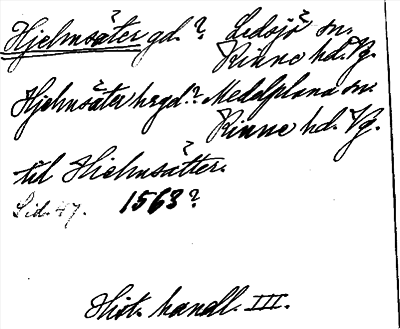 Hjelmsäter gd.? Ledsjö sn.
Kinne hd. Vg.
Hjelmsäter hrgd.? Medelplana sn.
Kinne hd. Vg.
till Hielmsätter.
Sid. 47. 1563?
Hist. handl. III.